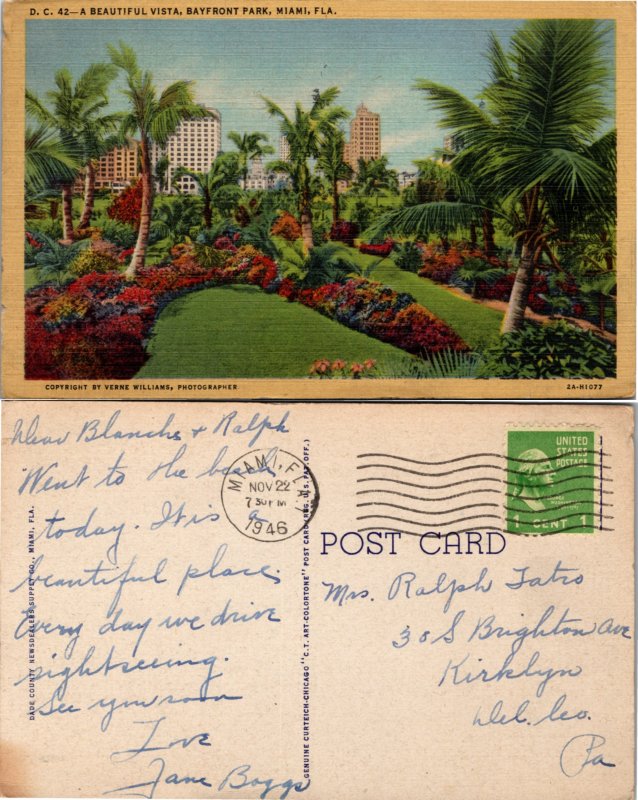 D. C. 42—A BEAUTIFUL VISTA, BAYFRONT PARK, MIAMI, FLA.
COPYRIGHT BY VERNE WILLIAMS, PHOTOGRAPHER
2A-H1077
Dear Blanche & Ralph
Went to the beach
today. It is a
beautiful place.
Every day we drive
sightseeing.
See you soon
Love
Jane Boggs
DADE COUNTY NEWSDEALERS SUPPLY CO., MIAMI, FLA.
GENUINE CURTEICH-CHICAGO "C.T. ART-COLORTONE" POST CARD (REG. U.S. PAT. OFF.)
MIAMI, FLA.
NOV 22
7 30 PM
1946
UNITED
STATES
POSTAGE
1 CENT 1
POST CARD
Mrs. Ralph Fatro
30 S Brighton Ave
Kirklyn
Del. Co.
Pa